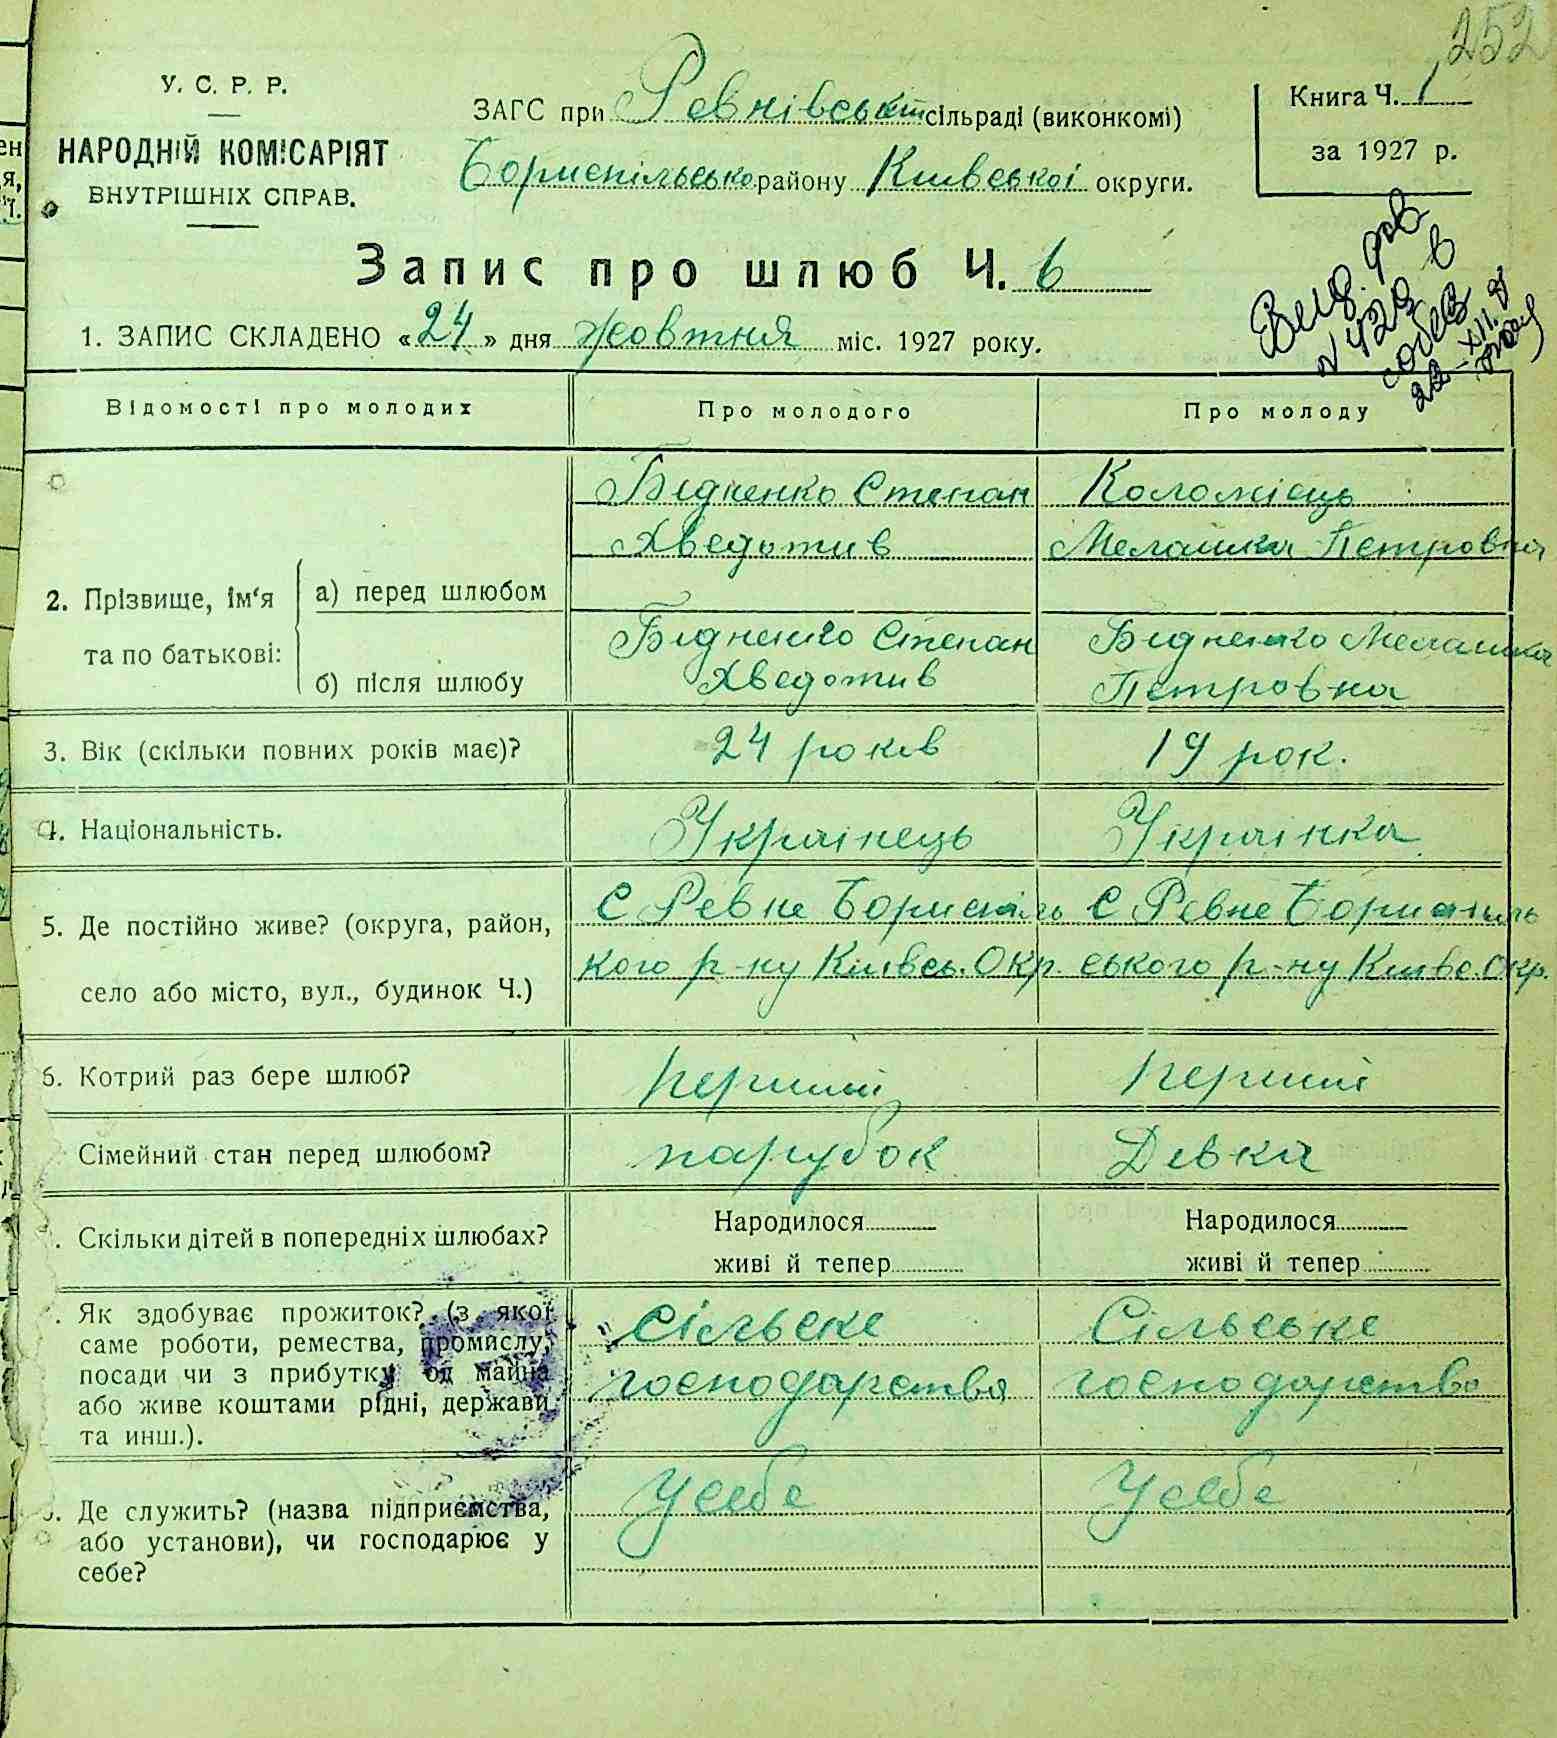 252
У. С. Р. Р.
НАРОДНІЙ КОМІСАРІЯТ
ВНУТРІШНІХ СПРАВ.
ЗАГС при Ревнівській сільраді (виконкомі)
Бориспільсько району Київської округи.
Книга Ч. 1
за 1927 р.
Запис про шлюб Ч. 6
1. ЗАПИС СКЛАДЕНО «24» дня жовтня міс. 1927 року.
Відомості про молодих Про молодого Про молоду
2. Прізвище, ім'я та по батькові:
а) перед шлюбом
Бідненко Степан
Хведотив
Коломієць
Мелашка Петровна
б) після шлюбу
Бідненко Степан
Хведотив
Бідненко Мелашка
Петровна
3. Вік (скільки повних років має)? 24 років 19 рок.
4. Національність. Українець Українка
5. Де постійно живе? (округа, район,
село або місто, вул., будинок Ч.)
С Ревне Бориспіль
кого р-ну Київсь. Окр.
С Ревне Бориспіль
ського р-ну Київс. Окр.
6. Котрий раз бере шлюб? перший перший
Сімейний стан перед шлюбом? парубок Дівка
. Скільки дітей в попередніх шлюбах?
Народилося
живі й тепер
Народилося
живі й тепер
. Як здобуває прожиток? (з якої
саме роботи, ремества, промислу,
посади чи з прибутку од майна
або живе коштами рідні, держави
та инш.).
Сільске
господарства
Сільське
господарство
. Де служить? (назва підприємства,
або установи), чи господарює у
себе?
У себе
У себе